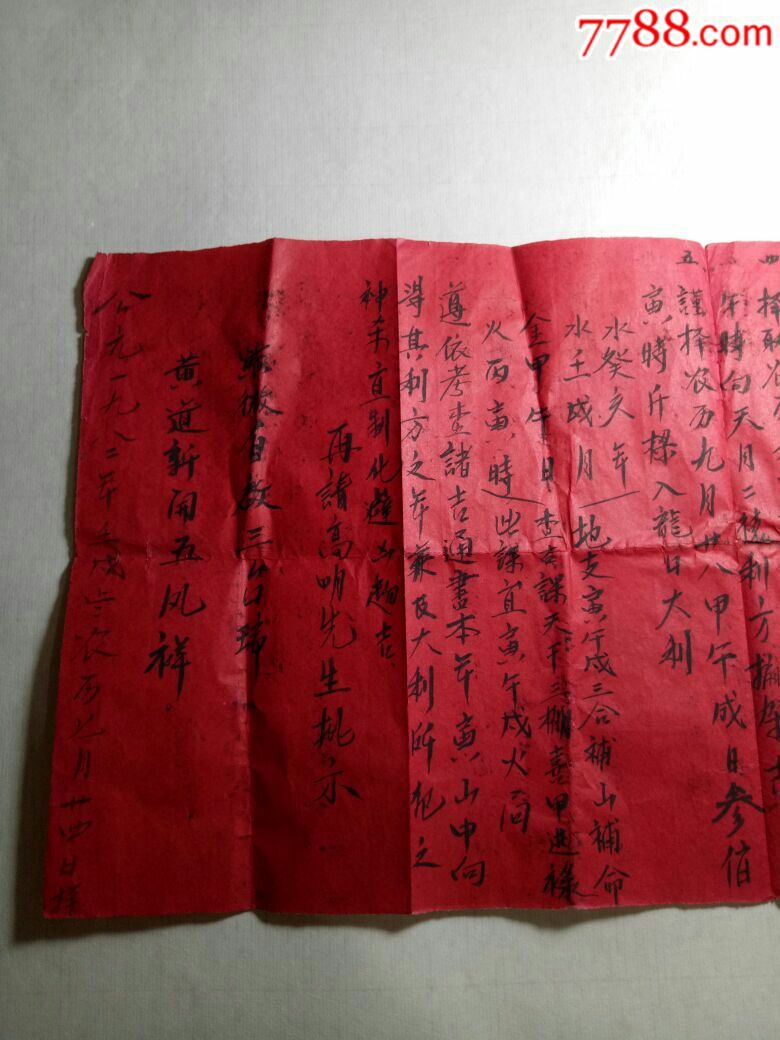 7788.com
四
擇取农
午時向天月二德利方
五
謹择农历九月廿八甲午成日参佰
寅時斤樑入龍口大利
水癸亥年
水壬戌月
地支寅午戌三合補山補命
金甲午日
查吉課天干三
喜甲進禄
火丙寅時
此課宜寅午戌火局
遵依考查諸吉通書本年寅山申向
得其利方之年兼及大利所犯之
神杀宜制化避凶趋吉
再請高明先生批示
三台
黄道新開五凤祥。
公元一九八二年壬戌
农历九月廿四日择